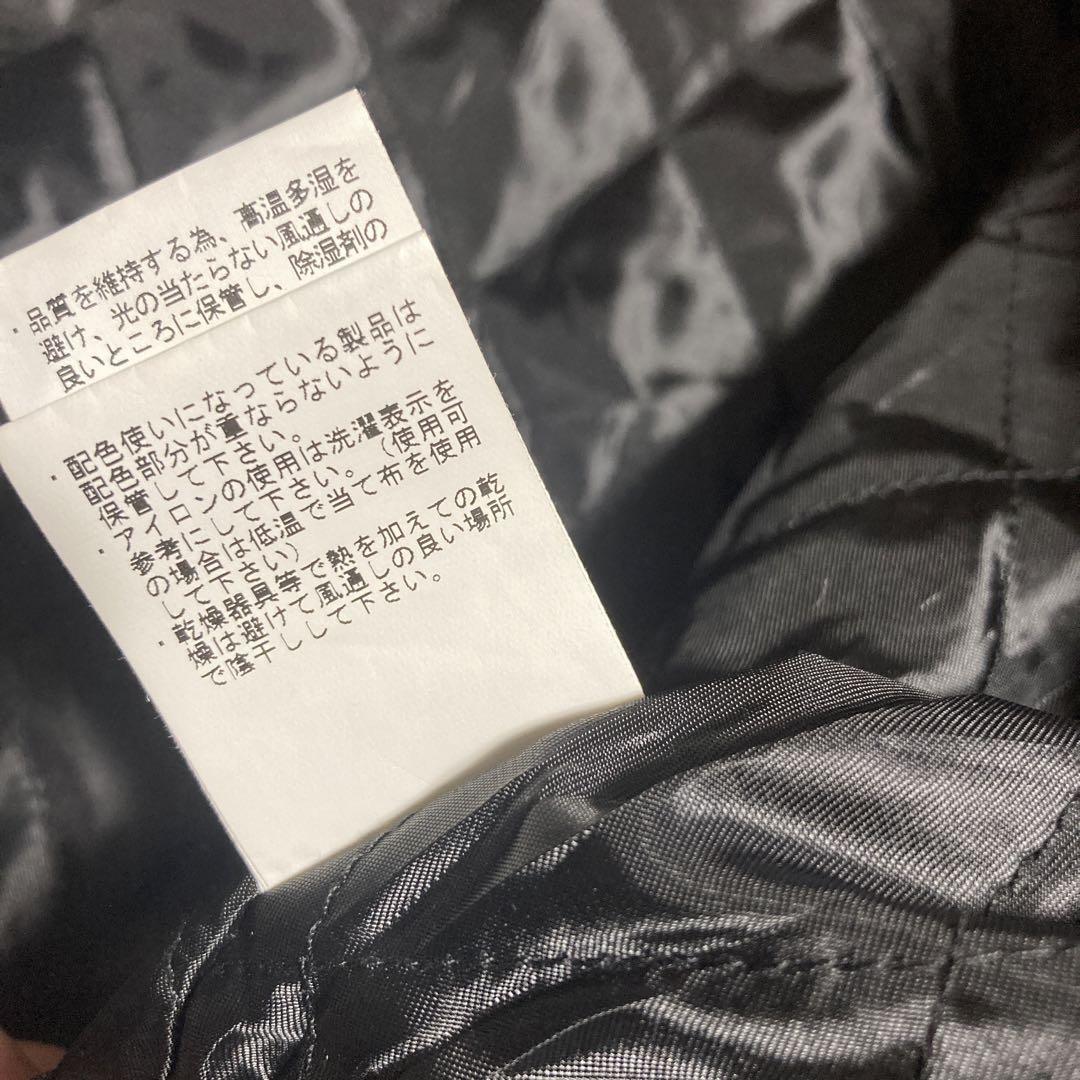 ・品質を維持する為、高温多湿を
避け、光の当たらない風通しの
良いところに保管し、除湿剤の
・配色使いになっている製品は
配色部分が重ならないように
保管して下さい。
・アイロンの使用は洗濯表示を
参考にして下さい。（使用可
の場合は低温で当て布を使用
して下さい）
・乾燥器具等で熱を加えての乾
燥は避けて風通しの良い場所
で陰干しして下さい。